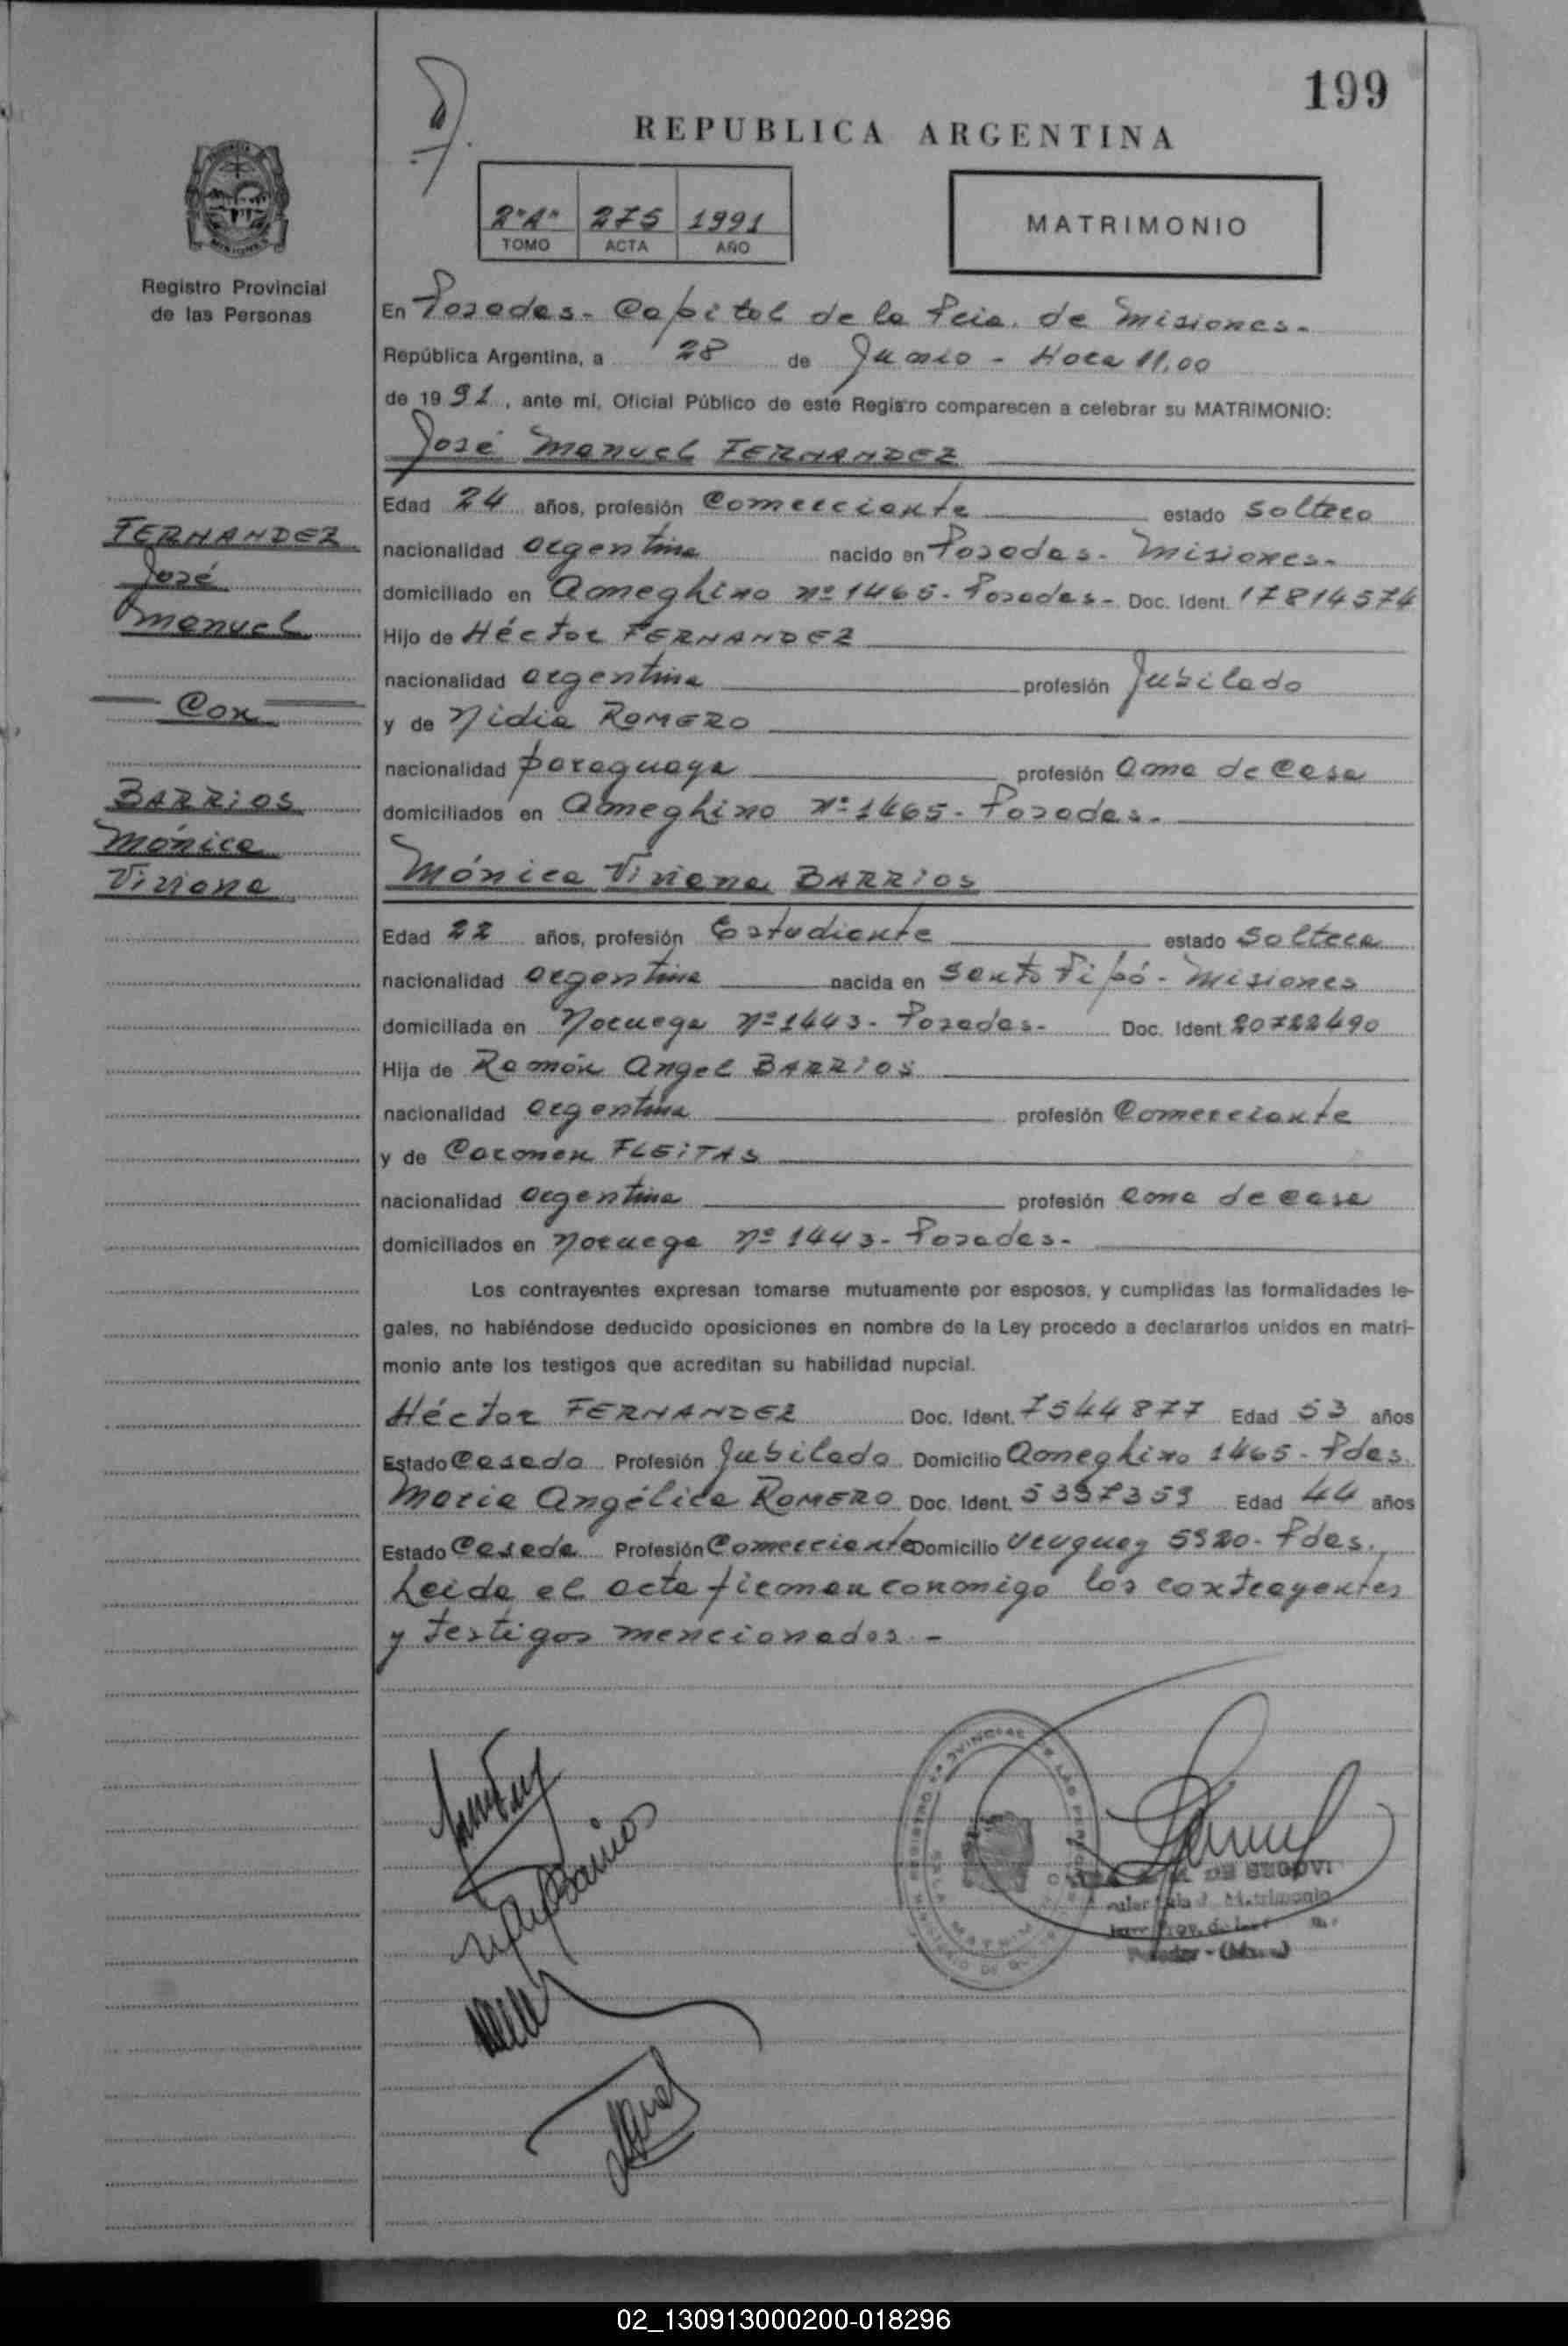 199
REPUBLICA ARGENTINA
2"A" 275 1991
TOMO ACTA AÑO
MATRIMONIO
Registro Provincial
de las Personas
En Posadas - Capital de la Pcia. de Misiones.
República Argentina, a 28 de Junio - Hora 11,00
de 1991, ante mi, Oficial Público de este Registro comparecen a celebrar su MATRIMONIO:
José Manuel FERNANDEZ
Edad 24 años, profesión Comerciante estado Soltero
nacionalidad argentina nacido en Posadas - Misiones.
domiciliado en Ameghino Nº 1465 - Posadas - Doc. Ident. 17814574
Hijo de Héctor FERNANDEZ
nacionalidad argentina profesión Jubilado
y de Nidia ROMERO
nacionalidad paraguaya profesión ama de casa
domiciliados en Ameghino Nº 1465 - Posadas -
FERNANDEZ
José
Manuel
Con
BARRIOS
Mónica
Viviana
Mónica Viviana BARRIOS
Edad 22 años, profesión Estudiante estado Soltera
nacionalidad argentina nacida en Santo Pipó - Misiones
domiciliada en Noruega Nº 1443 - Posadas - Doc. Ident. 20722490
Hija de Ramón Angel BARRIOS
nacionalidad argentina profesión Comerciante
y de Carmen FLEITAS
nacionalidad argentina profesión ama de casa
domiciliados en Noruega Nº 1443 - Posadas -
Los contrayentes expresan tomarse mutuamente por esposos, y cumplidas las formalidades le-
gales, no habiéndose deducido oposiciones en nombre de la Ley procedo a declararlos unidos en matri-
monio ante los testigos que acreditan su habilidad nupcial.
Héctor FERNANDEZ Doc. Ident. 7544877 Edad 53 años
Estado Casado Profesión Jubilado Domicilio Ameghino 1465 - Pdas.
Maria Angélica ROMERO Doc. Ident. 5397359 Edad 44 años
Estado Casada Profesión Comerciante Domicilio Uruguay 5920 - Pdas.
Leida el acta firman conmigo los contrayentes
y testigos mencionados. -
DE SEGOVI
02_130913000200-018296